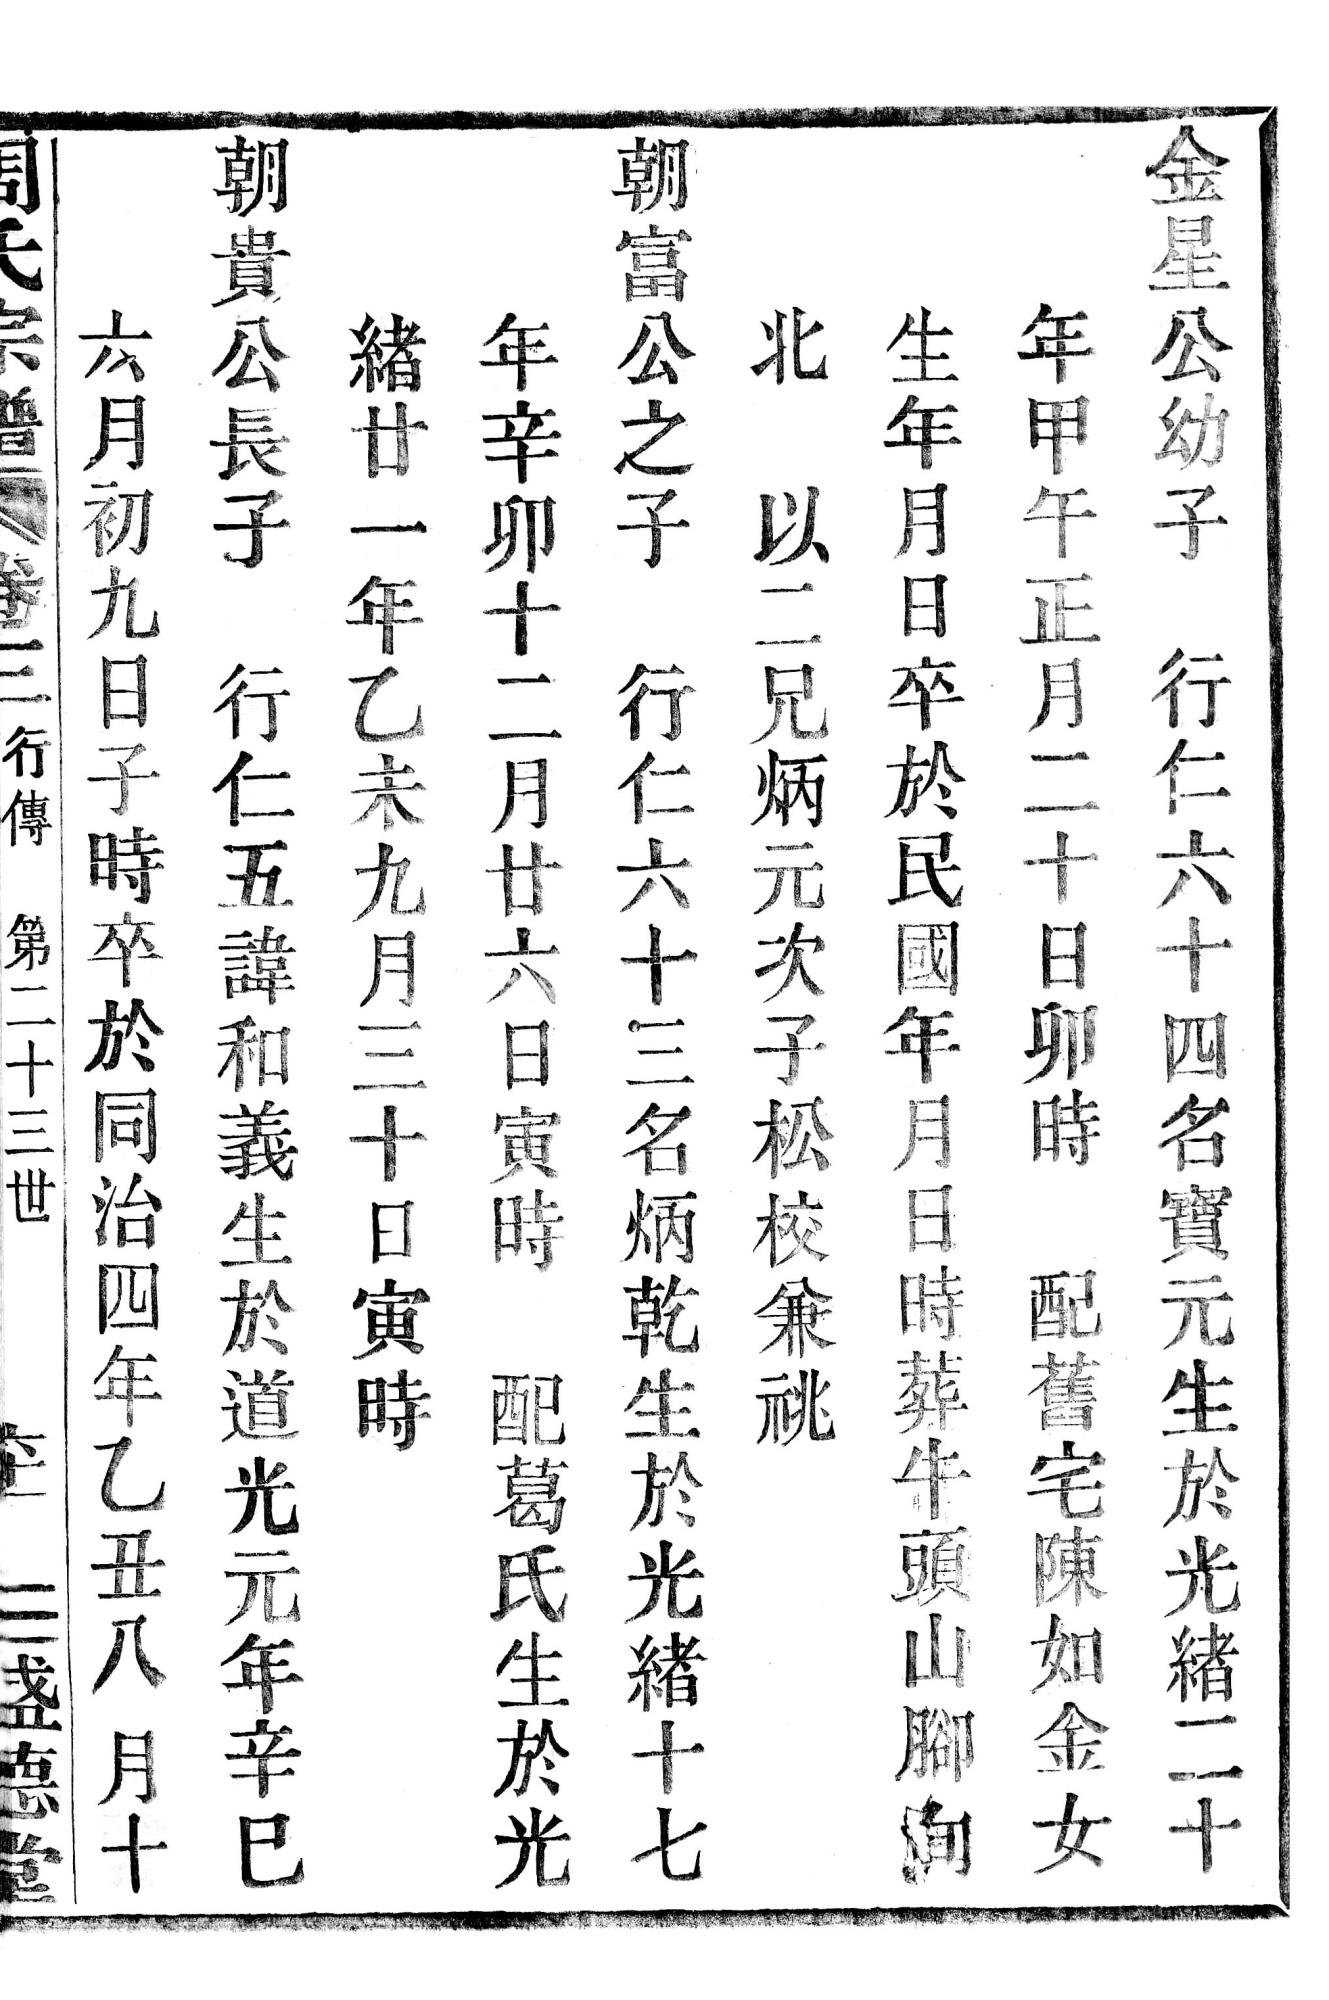 金星公幼子　行仁六十四名寶元生於光緒二十
年甲午正月二十日卯時　配舊宅陳如金女
生年月日卒於民國年月日時葬牛頭山腳向
北　以二兄炳元次子松校兼祧
朝富公之子　行仁六十三名炳乾生於光緒十七
年辛卯十二月廿六日寅時　配葛氏生於光
緒廿一年乙未九月三十日寅時
朝貴公長子　行仁五諱和義生於道光元年辛巳
六月初九日子時卒於同治四年乙丑八月十
周氏宗譜　卷三　行傳　第二十三世　三盛德堂